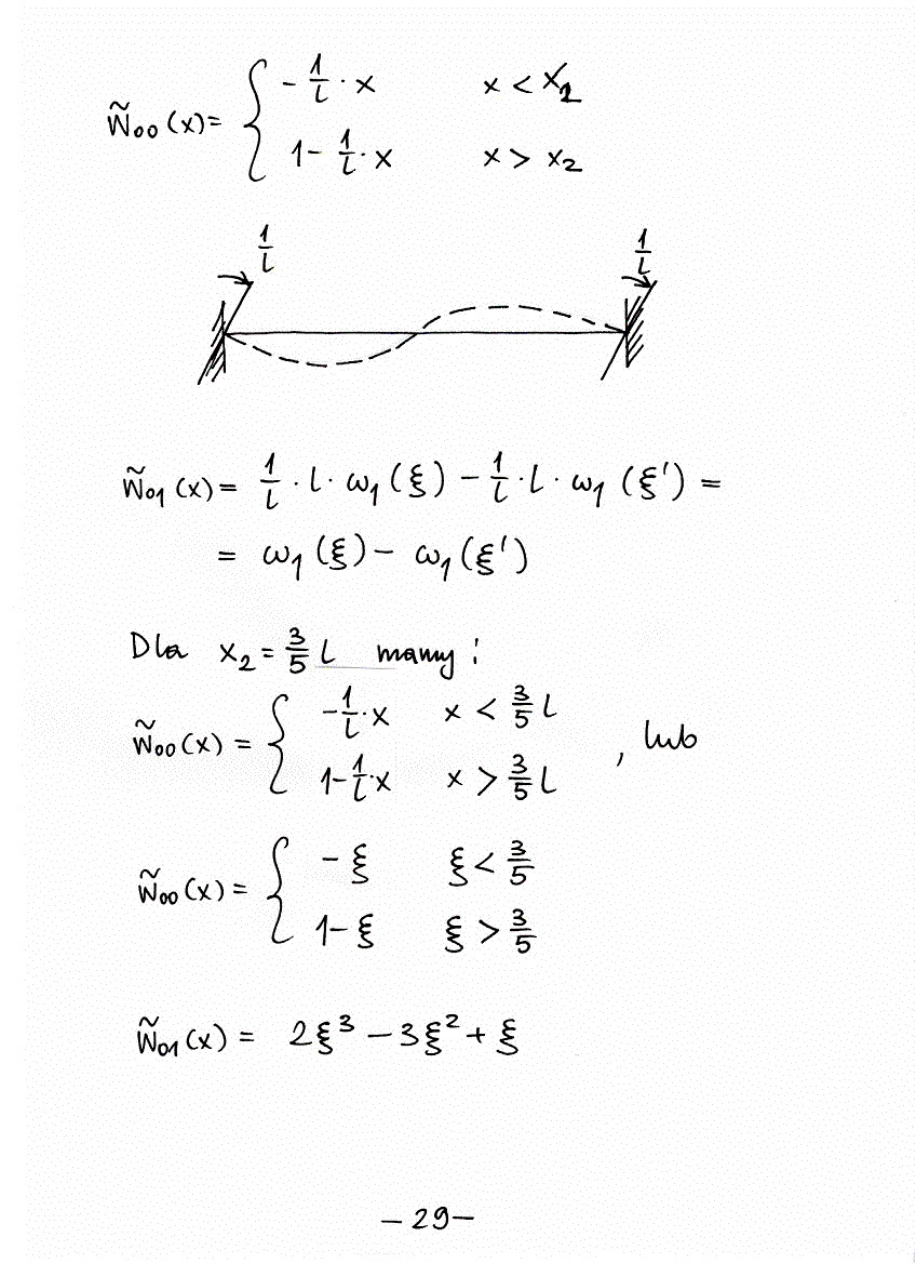 w̃₀₀(x)= { -1/l · x    x < x₂
1 - 1/l · x    x > x₂
1/l    1/l
w̃₀₁(x) = 1/l · l · ω₁(ξ) - 1/l · l · ω₁(ξ') =
= ω₁(ξ) - ω₁(ξ')
Dla x₂ = 3/5 l mamy :
w̃₀₀(x) = { -1/l · x    x < 3/5 l
1 - 1/l · x    x > 3/5 l    , lub
w̃₀₀(x) = { -ξ    ξ < 3/5
1 - ξ    ξ > 3/5
w̃₀₁(x) = 2ξ³ - 3ξ² + ξ
- 29 -